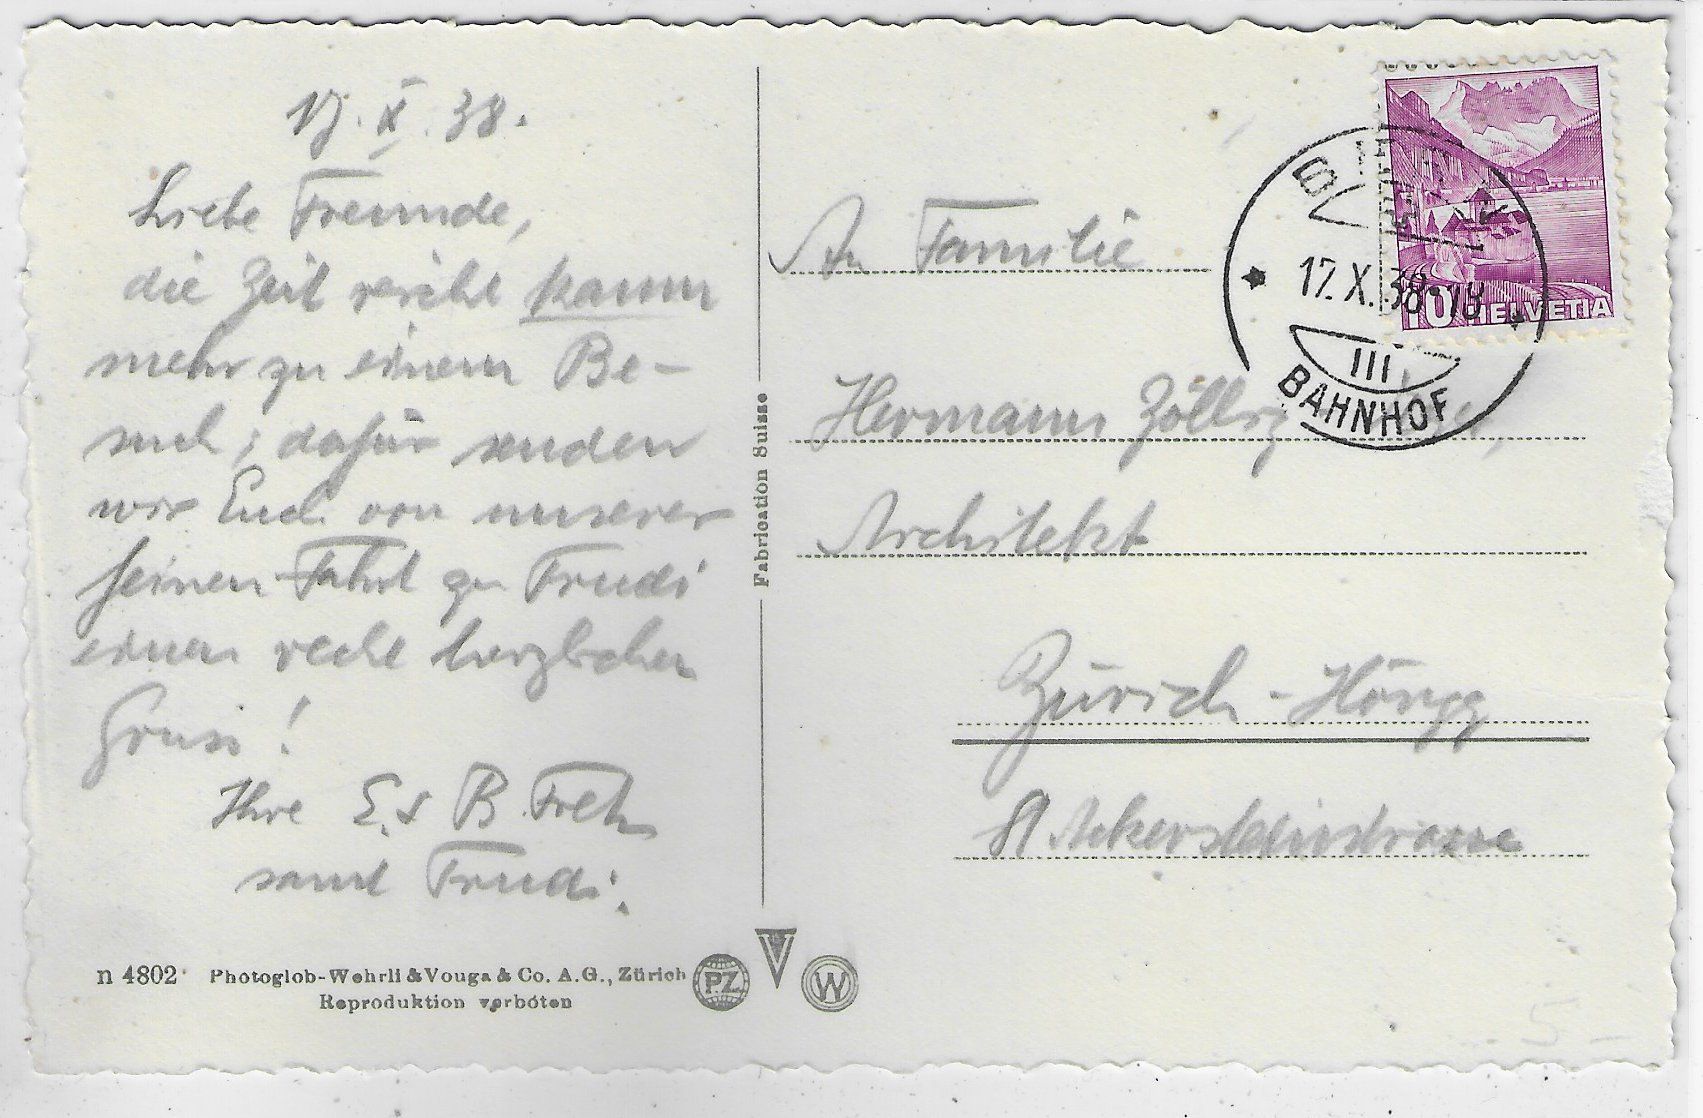 17. X. 38.
Liebe Freunde,
die Zeit reicht kaum
mehr zu einem Be-
such; dafür senden
wir Euch von unserer
feinen Fahrt zu Trudi
einen recht herzlichen
Gruss!
Ihre E. & B. Freh
samt Trudi.
n 4802 Photoglob-Wehrli & Vouga & Co. A.G., Zürich
Reproduktion verboten
PZ V W
Fabrication Suisse
An Familie
Hermann
Architekt
Zürich-Höngg
Ackersteinstrasse
10 HELVETIA
17.X.38-18
III.
BAHNHOF